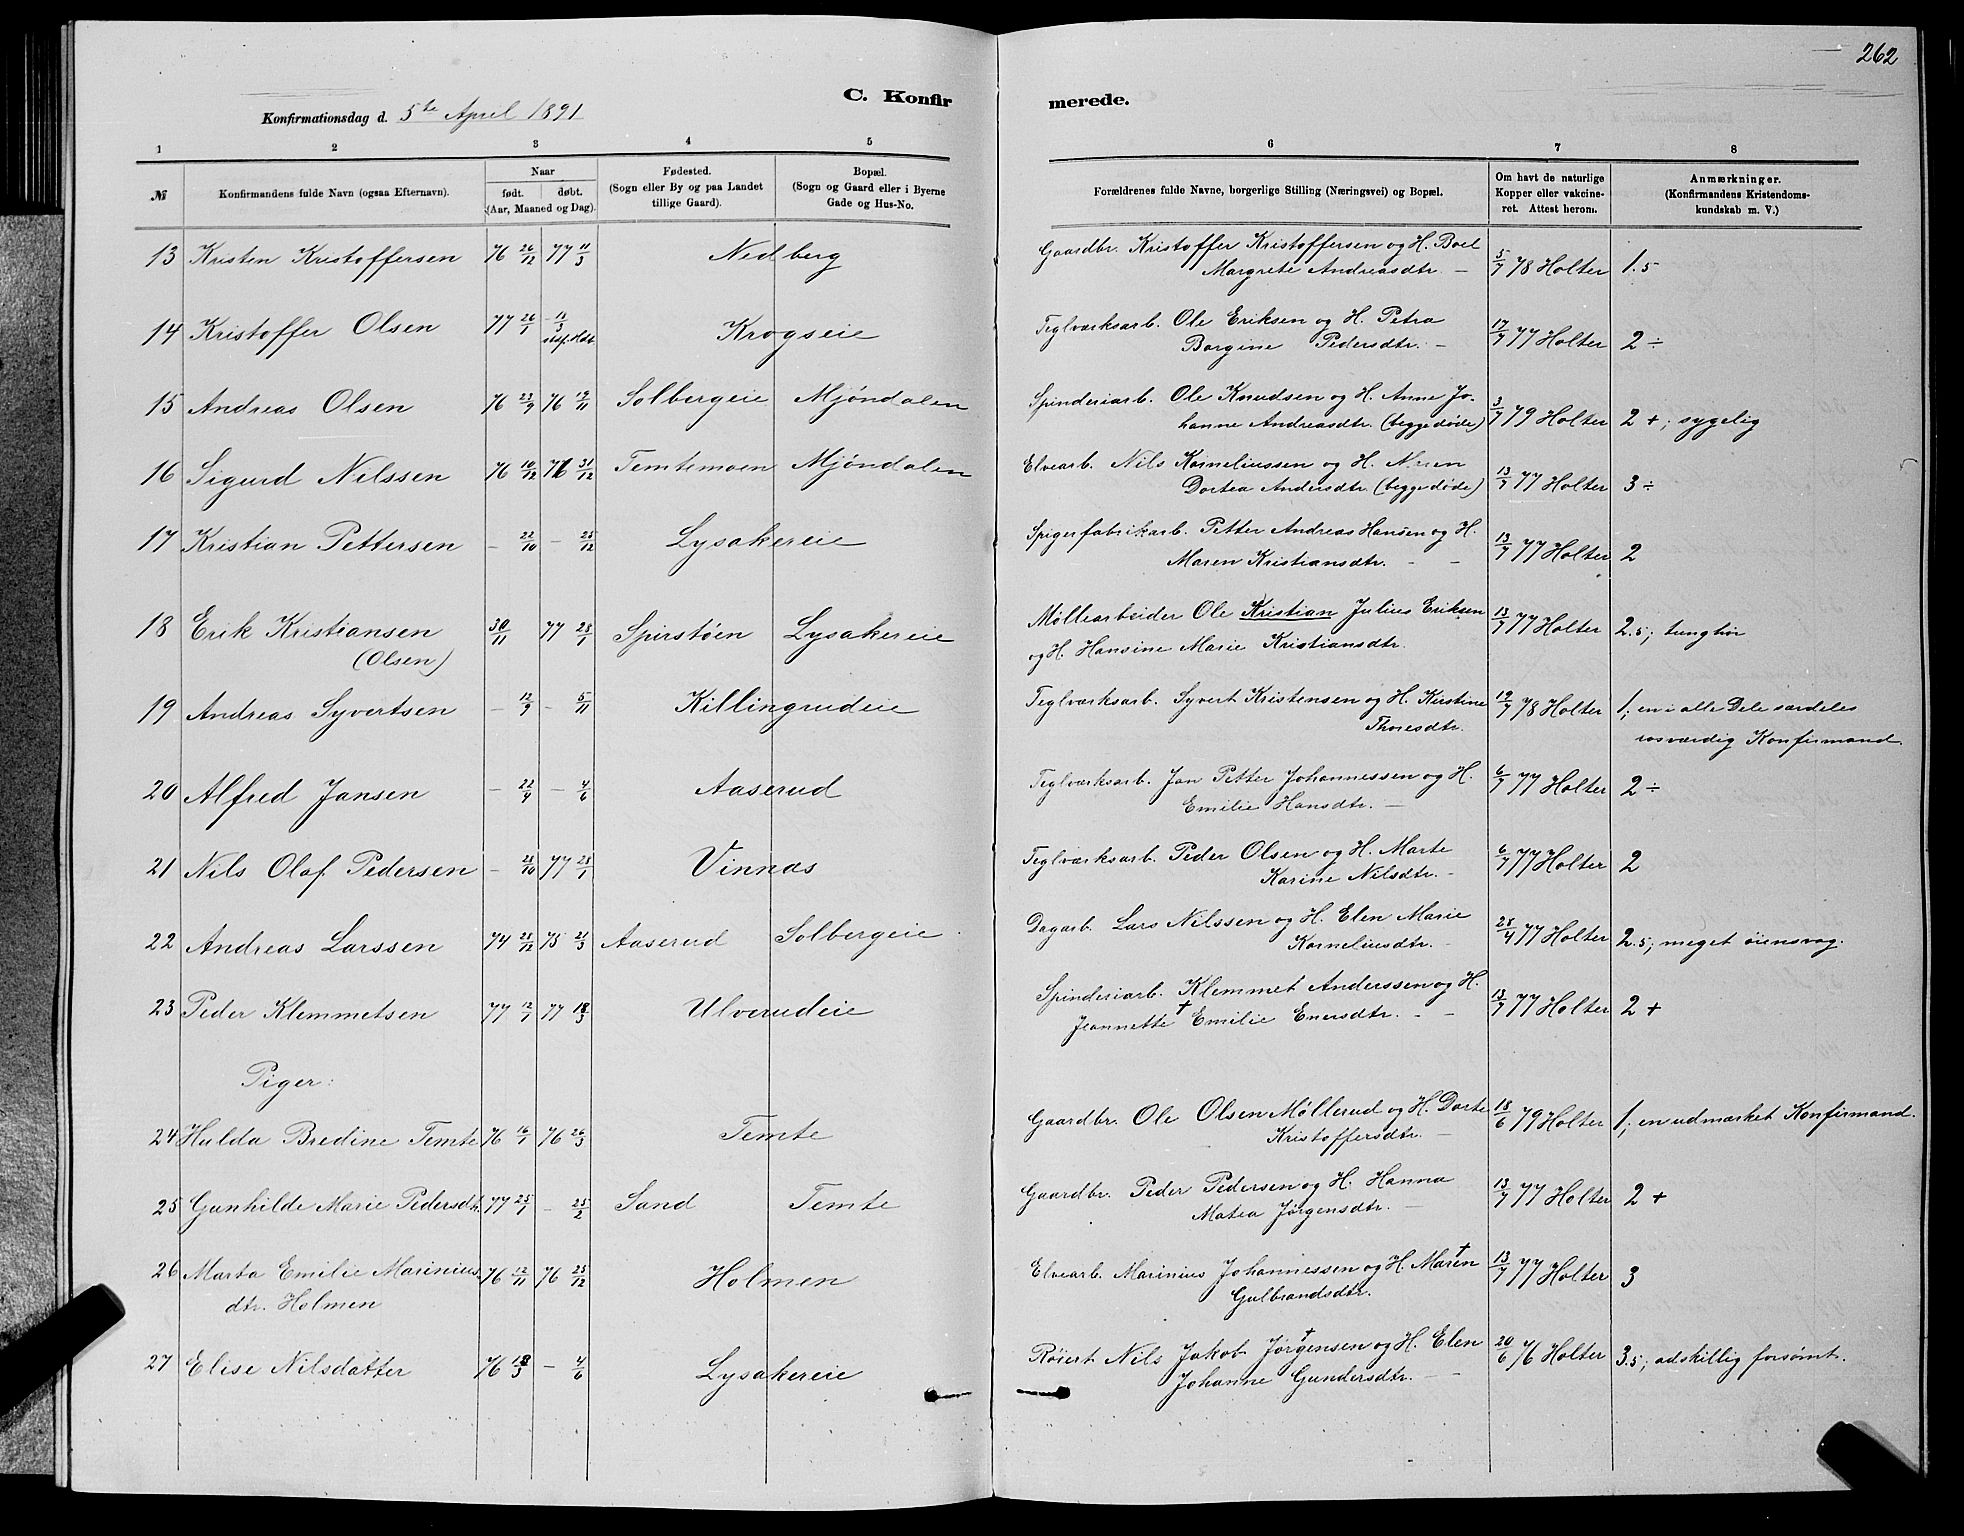 262
C. Konfirmerede.
Konfirmationsdag d. 5te April 1891
1 2 3 4 5 6 7 8
№ | Konfirmandens fulde Navn (ogsaa Efternavn). | Naar født. døbt. (Aar, Maaned og Dag). | Fødested. (Sogn eller By og paa Landet tillige Gaard). | Bopæl. (Sogn og Gaard eller i Byerne Gade og Hus-No. | Forældrenes fulde Navne, borgerlige Stilling (Næringsvei) og Bopæl. | Om havt de naturlige Kopper eller vakcineret. Attest herom. | Anmærkninger. (Konfirmandens Kristendomskundskab m. V.)
13 Kristen Kristoffersen 76 26/12 77 11/3 Nedberg Gaardbr. Kristoffer Kristoffersen og H. Boel 5/7 78 Holter 1.5
Margrete Andreasdtr. —
14 Kristoffer Olsen 77 26/1 - 11/3 Krogseie Teglværksarb. Ole Eriksen og H. Petra 17/7 77 Holter 2 ÷
Borgine Pedersdtr. -
15 Andreas Olsen 76 23/9 76 19/11 Solbergeie Mjøndalen Spinderiarb. Ole Knudsen og H. Anne Jo- 3/7 79 Holter 2 +; sygelig
hanne Andreasdtr. (begge døde)
16 Sigurd Nilssen 76 10/12 76 31/12 Temtemoen Mjøndalen Elvearb. Nils Korneliussen og H. Maren 13/7 77 Holter 3 ÷
Dortea Andersdtr. (begge døde)
17 Kristian Pettersen - 22/10 - 25/12 Lysakereie Spigerfabrikarb. Petter Andreas Hansen og H. 13/7 77 Holter 2
Maren Kristiansdtr. - -
18 Erik Kristiansen 30/11 77 28/1 Spirstøen Lysakereie Møllearbeider Ole Kristian Julius Eriksen 13/7 77 Holter 2.5; tunghør
(Olsen) og H. Hansine Marie Kristiansdtr.
19 Andreas Syvertsen - 12/9 - 5/11 Killingrudeie Teglværksarb. Syvert Kristensen og H. Kirstine 19/7 78 Holter 1; en i alle Dele særdeles
Thoresdtr. rosværdig Konfirmand.
20 Alfred Jansen - 22/4 - 4/6 Aaserud Teglværksarb. Jan Petter Johannessen og H. 6/7 77 Holter 2 ÷
Emilie Hansdtr. —
21 Nils Olaf Pedersen - 28/10 77 28/1 Vinnæs Teglværksarb. Peder Olsen og H. Marte 6/7 77 Holter 2
Karine Nilsdtr. -
22 Andreas Larssen 74 28/12 75 21/3 Aaserud Solbergeie Dagarb. Lars Nilssen og H. Elen Marie 28/4 77 Holter 2.5; meget øiensvag.
Korneliusdtr. -
23 Peder Klemmetsen 77 12/1 77 18/3 Ulverudeie Spinderiarb. Klemmet Anderssen og H. 13/7 77 Holter 2 +
Jeannette † Emilie Enersdtr. - -
Piger:
24 Hulda Bredine Temte 76 16/1 76 26/3 Temte Gaardbr. Ole Olsen Møllerud og H. Dorte 18/6 79 Holter 1; en udmærket Konfirmand.
Kristoffersdtr. —
25 Gunhilde Marie Pedersdtr. 77 25/1 - 25/2 Sand Temte Gaardbr. Peder Pedersen og H. Hanna 13/7 77 Holter 2 +
Matea Jørgensdtr. —
26 Marta Emilie Marinius- 76 12/11 76 25/12 Holmen Elvearb. Marinius Johannessen og H. Maren † 13/7 77 Holter 3
dtr. Holmen Gulbrandsdtr.
27 Elise Nilsdatter 76 18/3 - 4/6 Lysakereie Røiert Nils Jakob Jørgensen † og H. Elen 20/6 76 Holter 3.5; adskillig forsømt.
Johanne Gundersdtr. - -